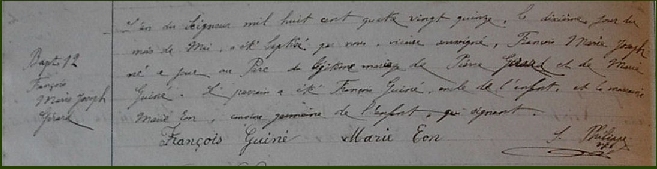 Bapt. 12
François
Marie Joseph
Gérard
L'an du Seigneur mil huit cent quatre vingt quinze, le dixième jour du
mois de Mai a été baptisé par nous, vicaire soussigné, François Marie Joseph
né à jour au Parc du légitime mariage de Pierre Gérard et de Marie
Guiné. Le parrain a été François Guiné, oncle de l'enfant, et la marraine
Marie Eon, cousine germaine de l'enfant, qui signent.
François Guiné Marie Eon